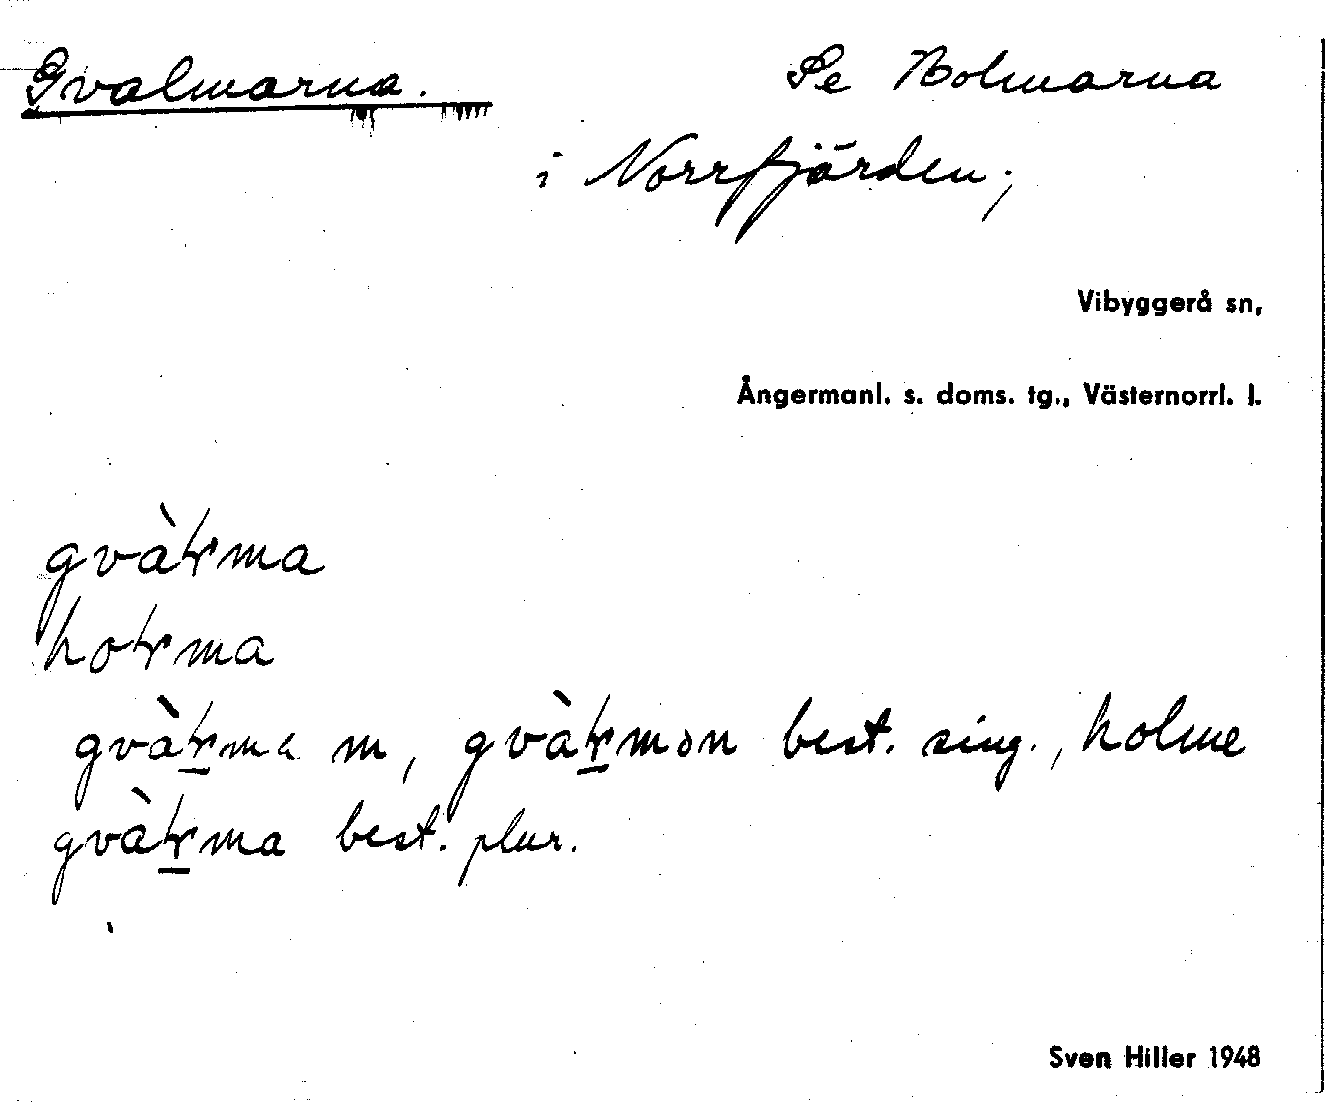 Gvalmarna. Se Holmarna
i Norrfjärden;
Vibyggerå sn,
Ångermanl. s. doms. tg., Västernorrl. l.
gvàɽma
hoɽma
gvàɽma m, gvàɽmən best. sing., holme
gvàɽma best. plur.
Sven Hiller 1948